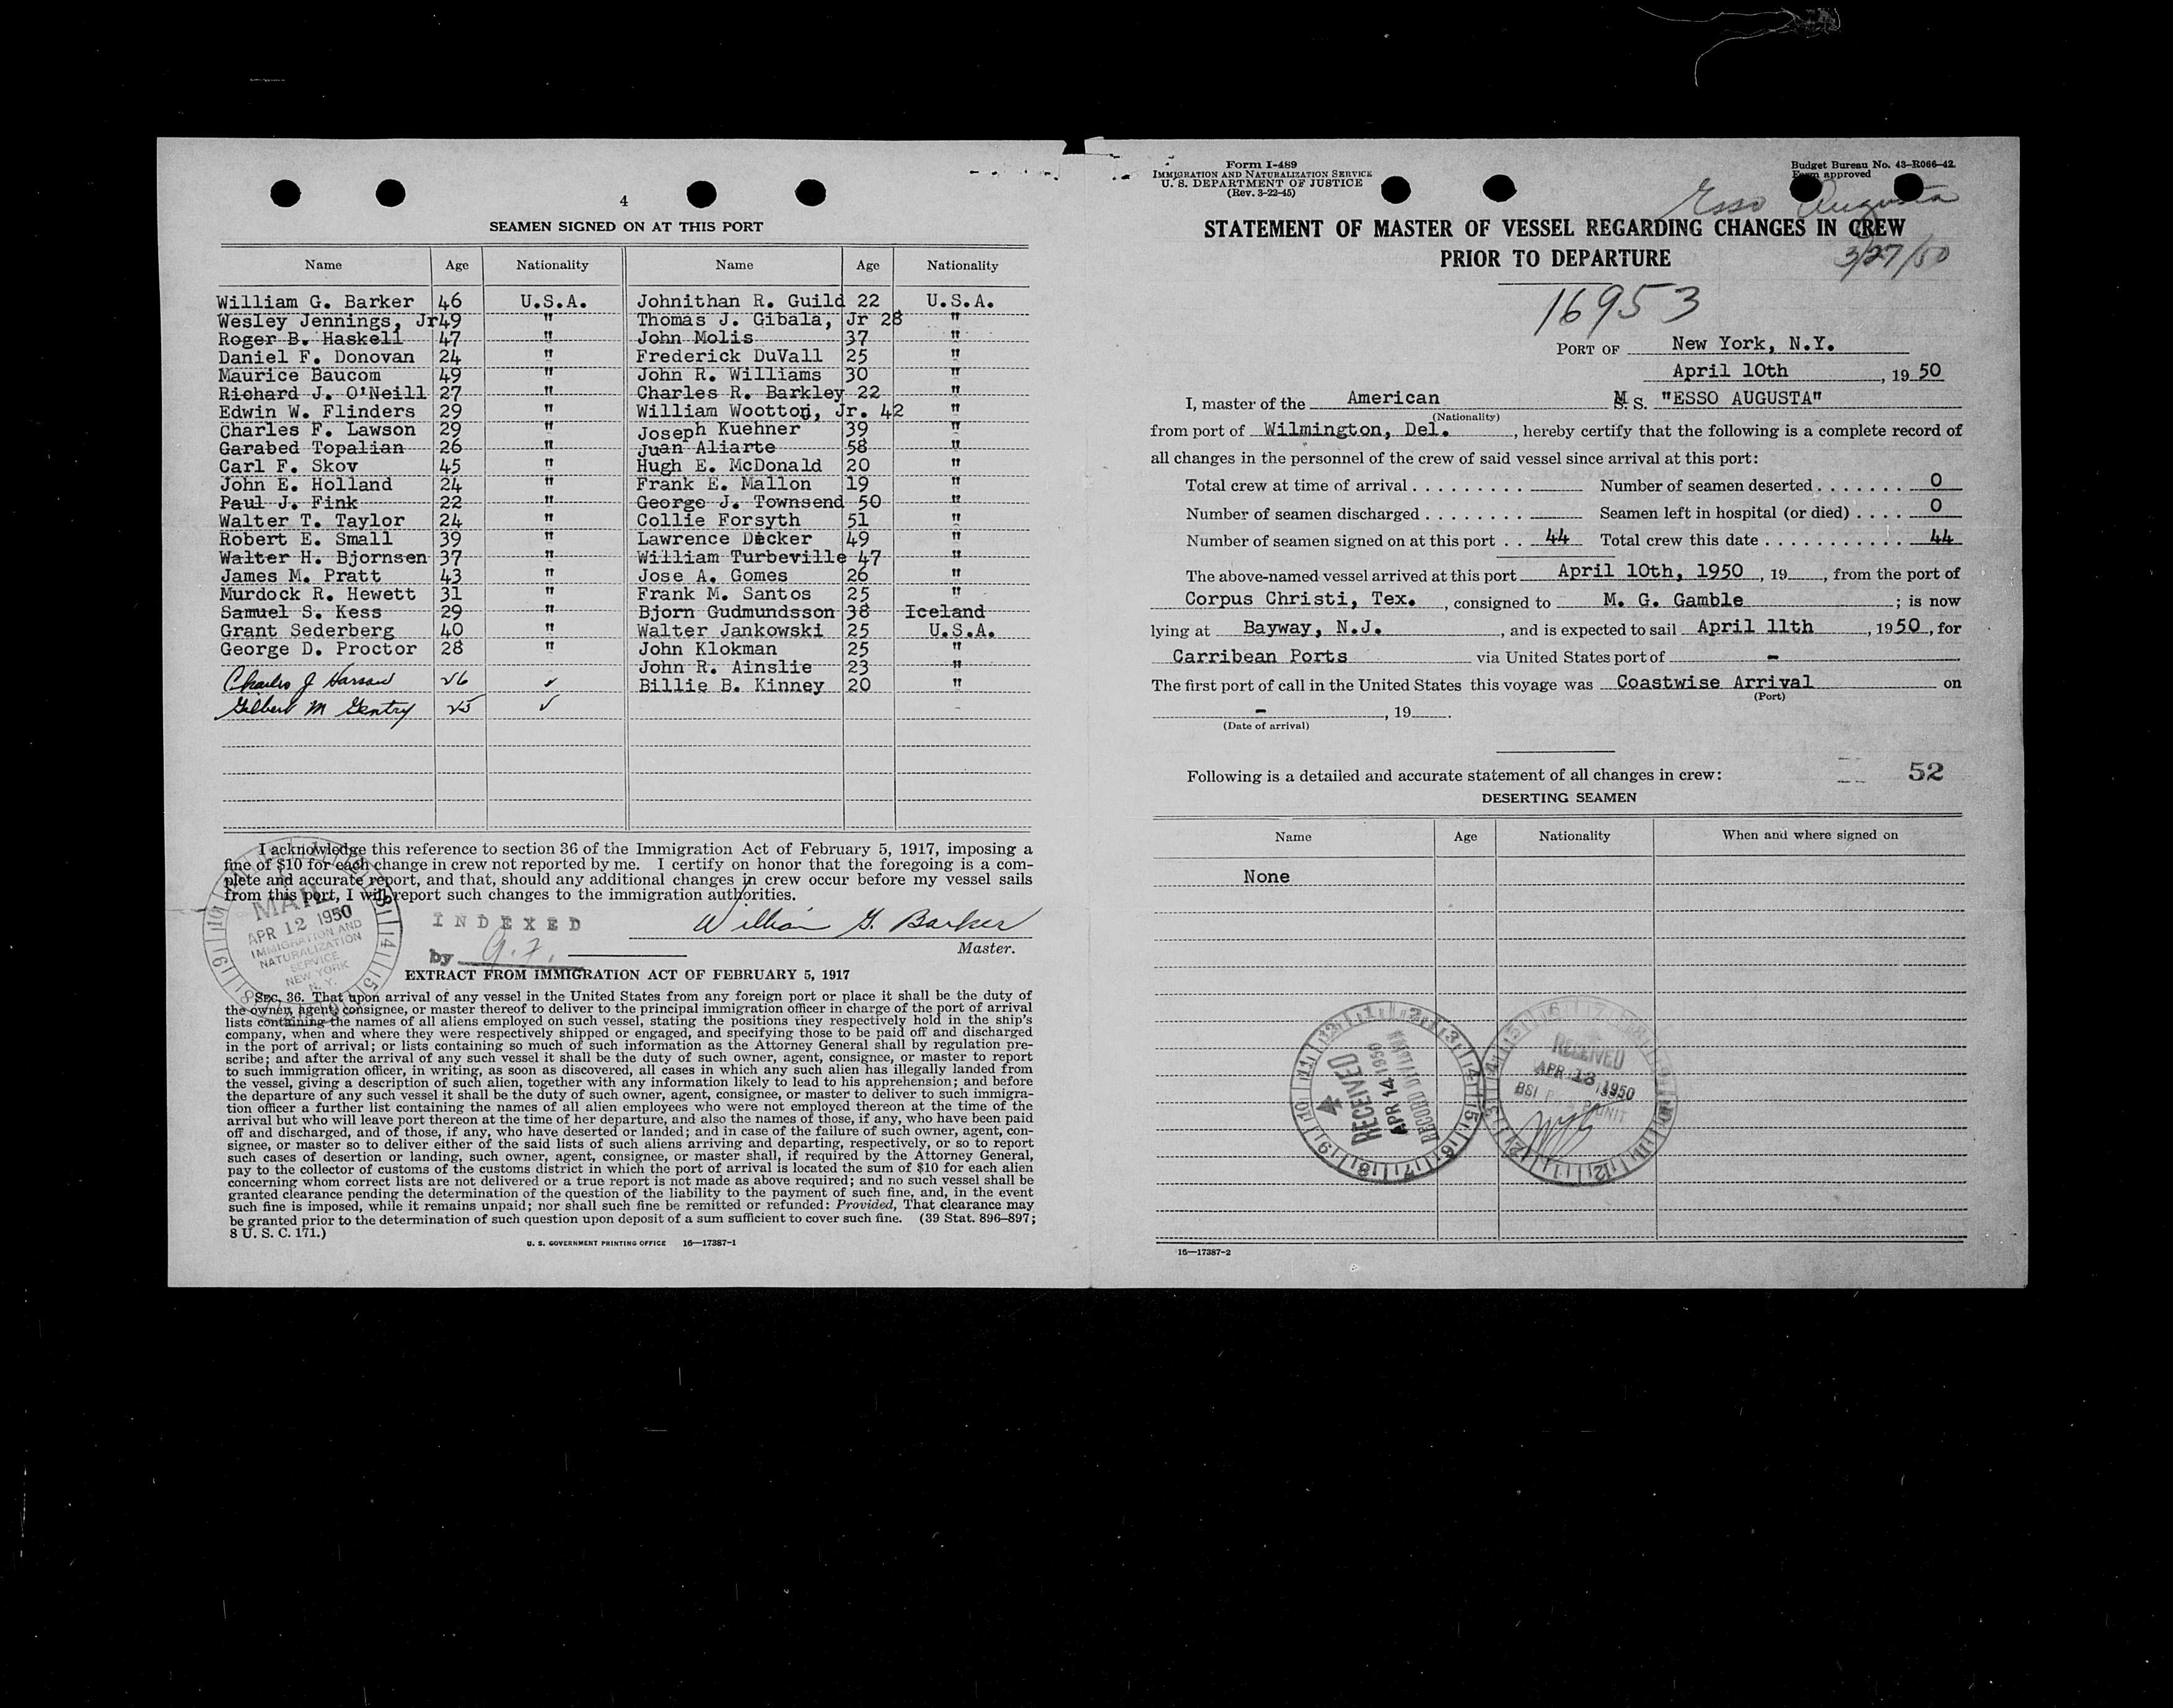 4
SEAMEN SIGNED ON AT THIS PORT
Name Age Nationality Name Age Nationality
William G. Barker 46 U.S.A. Johnithan R. Guild 22 U.S.A.
Wesley Jennings, Jr 49 " Thomas J. Gibala, Jr 28 "
Roger B. Haskell 47 " John Molis 37 "
Daniel F. Donovan 24 " Frederick DuVall 25 "
Maurice Baucom 49 " John R. Williams 30 "
Richard J. O'Neill 27 " Charles R. Barkley 22 "
Edwin W. Flinders 29 " William Wootton, Jr. 42 "
Charles F. Lawson 29 " Joseph Kuehner 39 "
Garabed Topalian 26 " Juan Aliarte 58 "
Carl F. Skov 45 " Hugh E. McDonald 20 "
John E. Holland 24 " Frank E. Mallon 19 "
Paul J. Fink 22 " George J. Townsend 50 "
Walter T. Taylor 24 " Collie Forsyth 51 "
Robert E. Small 39 " Lawrence Decker 49 "
Walter H. Bjornsen 37 " William Turbeville 47 "
James M. Pratt 43 " Jose A. Gomes 26 "
Murdock R. Hewett 31 " Frank M. Santos 25 "
Samuel S. Kess 29 " Bjorn Gudmundsson 38 Iceland
Grant Sederberg 40 " Walter Jankowski 25 U.S.A.
George D. Proctor 28 " John Klokman 25 "
John R. Ainslie 23 "
Charles J 26 ✓ Billie B. Kinney 20 "
Gilbert M Gentry 25 ✓
I acknowledge this reference to section 36 of the Immigration Act of February 5, 1917, imposing a
fine of $10 for each change in crew not reported by me. I certify on honor that the foregoing is a com-
plete and accurate report, and that, should any additional changes in crew occur before my vessel sails
from this port, I will report such changes to the immigration authorities.
MAIL
APR 12 1950
IMMIGRATION AND
NATURALIZATION
SERVICE
NEW YORK
N. Y.
INDEXED
by G.F.
William G. Barker
Master.
EXTRACT FROM IMMIGRATION ACT OF FEBRUARY 5, 1917
SEC. 36. That upon arrival of any vessel in the United States from any foreign port or place it shall be the duty of
the owner, agent, consignee, or master thereof to deliver to the principal immigration officer in charge of the port of arrival
lists containing the names of all aliens employed on such vessel, stating the positions they respectively hold in the ship's
company, when and where they were respectively shipped or engaged, and specifying those to be paid off and discharged
in the port of arrival; or lists containing so much of such information as the Attorney General shall by regulation pre-
scribe; and after the arrival of any such vessel it shall be the duty of such owner, agent, consignee, or master to report
to such immigration officer, in writing, as soon as discovered, all cases in which any such alien has illegally landed from
the vessel, giving a description of such alien, together with any information likely to lead to his apprehension; and before
the departure of any such vessel it shall be the duty of such owner, agent, consignee, or master to deliver to such immigra-
tion officer a further list containing the names of all alien employees who were not employed thereon at the time of the
arrival but who will leave port thereon at the time of her departure, and also the names of those, if any, who have been paid
off and discharged, and of those, if any, who have deserted or landed; and in case of the failure of such owner, agent, con-
signee, or master so to deliver either of the said lists of such aliens arriving and departing, respectively, or so to report
such cases of desertion or landing, such owner, agent, consignee, or master shall, if required by the Attorney General,
pay to the collector of customs of the customs district in which the port of arrival is located the sum of $10 for each alien
concerning whom correct lists are not delivered or a true report is not made as above required; and no such vessel shall be
granted clearance pending the determination of the question of the liability to the payment of such fine, and, in the event
such fine is imposed, while it remains unpaid; nor shall such fine be remitted or refunded: Provided, That clearance may
be granted prior to the determination of such question upon deposit of a sum sufficient to cover such fine. (39 Stat. 896–897;
8 U. S. C. 171.)
U. S. GOVERNMENT PRINTING OFFICE 16—17387-1
Form I-489
IMMIGRATION AND NATURALIZATION SERVICE
U. S. DEPARTMENT OF JUSTICE
(Rev. 3-22-45)
Budget Bureau No. 43-R066-42.
Form approved
Esso Augusta
STATEMENT OF MASTER OF VESSEL REGARDING CHANGES IN CREW
PRIOR TO DEPARTURE
3/27/50
16953
PORT OF New York, N.Y.
April 10th, 1950
I, master of the American M. S. "ESSO AUGUSTA"
(Nationality)
from port of Wilmington, Del., hereby certify that the following is a complete record of
all changes in the personnel of the crew of said vessel since arrival at this port:
Total crew at time of arrival . . . . . . . . . Number of seamen deserted . . . . . . . 0
Number of seamen discharged . . . . . . . . Seamen left in hospital (or died) . . . . 0
Number of seamen signed on at this port . . 44 Total crew this date . . . . . . . . . . . . 44
The above-named vessel arrived at this port April 10th, 1950, 19, from the port of
Corpus Christi, Tex., consigned to M. G. Gamble; is now
lying at Bayway, N.J., and is expected to sail April 11th, 1950, for
Carribean Ports via United States port of -
The first port of call in the United States this voyage was Coastwise Arrival on
(Port)
-, 19.
(Date of arrival)
Following is a detailed and accurate statement of all changes in crew: 52
DESERTING SEAMEN
Name Age Nationality When and where signed on
None
RECEIVED
APR 14 1950
RECORD DIVISION
RECEIVED
APR 13 1950
BSI UNIT
16—17387-2